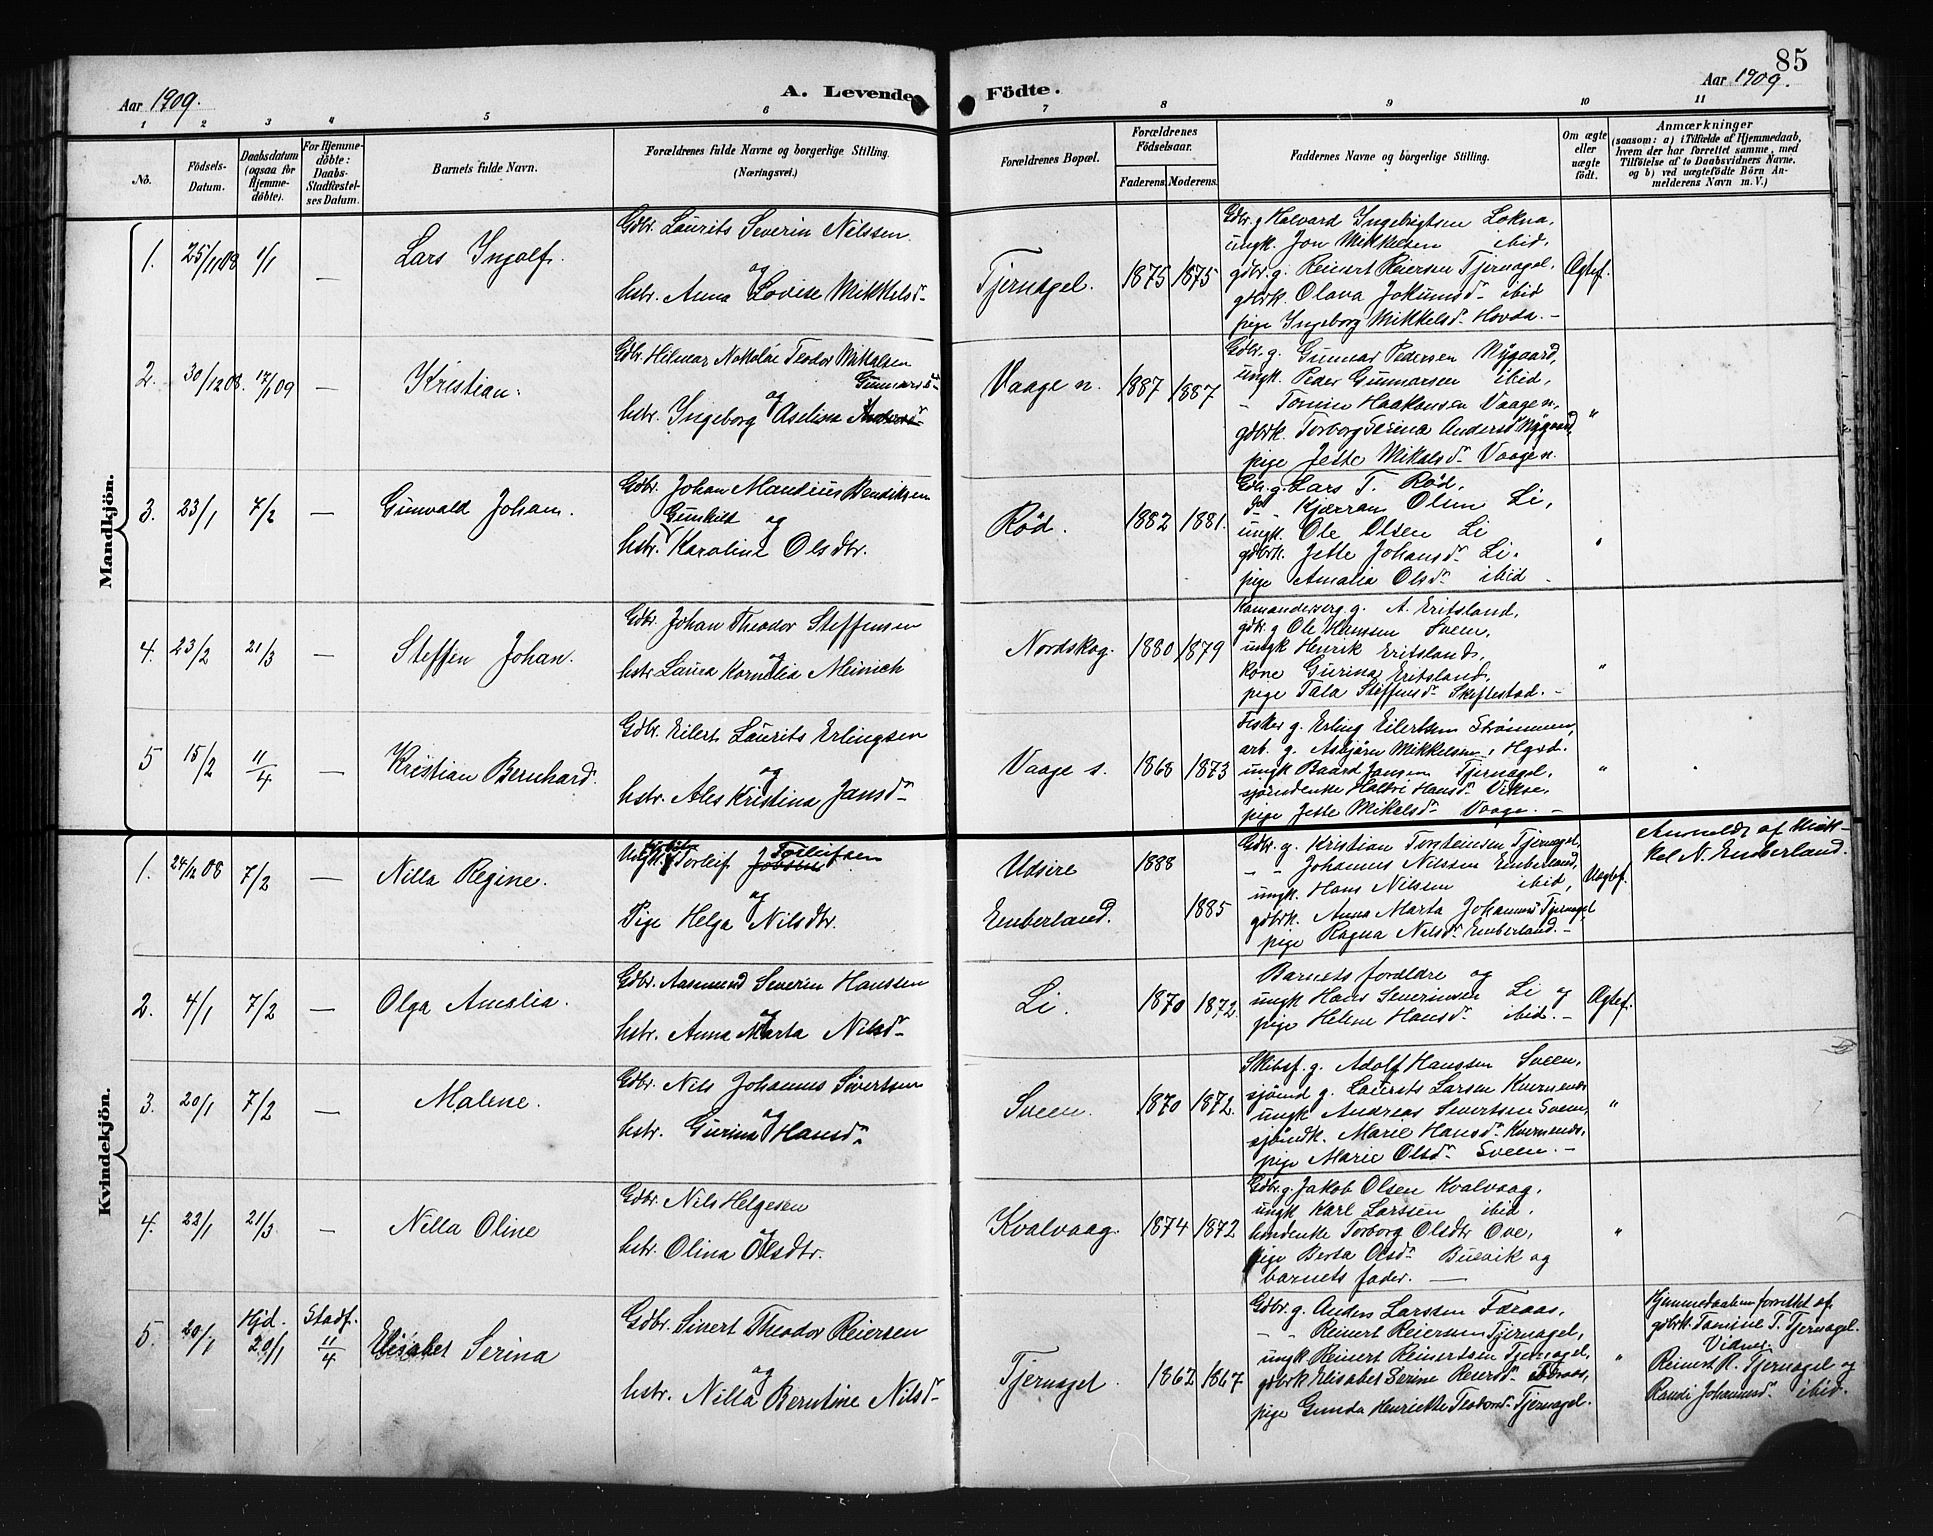 85
Aar 1909.
A. Levende Födte.
Aar 1909.
1 2 3 4 5 6 7 8 9 10 11
No.
Födsels-
Datum.
Daabsdatum
(ogsaa for
Hjemme-
döbte).
For Hjemme-
döbte:
Daabs-
Stadfæstel-
ses Datum.
Barnets fulde Navn.
Forældrenes fulde Navne og borgerlige Stilling.
(Næringsvei.)
Forældrenes Bopæl.
Forældrenes
Födselsaar.
Faderens. Moderens.
Faddernes Navne og borgerlige Stilling.
Om ægte
eller
uægte
födt.
Anmærkninger
(saasom: a) i Tilfælde af Hjemmedaab,
hvem der har forrettet samme, med
Tilföielse af to Daabsvidners Navne.
og b) ved uægtefödte Börn An-
melderens Navn m. V.)
Mandkjön.
1. 25/11 08 1/1 — Lars Ingolf.
Gdbr. Laurits Severin Nilssen
og
hstr. Anna Lovise Mikkelsd.
Tjernagel. 1875 1875
Gdbr. g Halvard Ingebrigtsen Lokna,
ungk. Jon Mikkelsen ibid,
gdbr. g. Reinert Reiersen Tjernagel,
gdbrk. Olava Jokumsd. ibid
pige Ingeborg Mikkelsd. Hovda. —
Ægtef.
2. 30/12 08. 17/1 09 — Kristian.
Gdbr. Hilmar Nikolai Teodor Mikkalsen
og Gunnarsd.
hstr. Ingeborg Aselina Andersd.
Vaage n. 1887 1887
Gdbr. g. Gunnar Pedersen Nygaard,
ungk. Peder Gunnarsen ibid,
- Tomine Haakonsen Vaage n,
gdbrk. Torborg Serina Andersd. Nygaard,
pige Jette Mikalsd. Vaage n.
"
3. 23/1 7/2 — Gunvald Johan.
Gdbr. Johan Mandius Bendiksen
Gunhild og
hstr. Karoline Olsdtr.
Rød. 1882 1881.
Gdbr. g. Lars T. Rød,
do - Kjærran Olsen Li,
ungk. Ole Olsen Li
gdbrk. Jette Johansd. Li.
pige Amalia Olsd. ibid —
"
4. 23/2 21/3 — Steffen Johan.
Gdbr. Johan Theodor Steffensen
og
hstr Laura Kornelia Meinich
Nordskog. 1880 1879
g. A. Eritsland,
gdbr. g Ole Hanssen Sveen,
ungk Henrik Eritsland,
Kone Gurina Eritsland,
pige Tala Steffensd. Skeftestad. —
"
5 15/2 11/4 — Kristian Bernhard.
Gdbr. Eilert Laurits Erlingsen
og
hstr. Ales Kristina Jansd.
Vaage s. 1868 1873
Fisker g. Erling Eilertsen Strømmen,
arb. g. Asbjørn Mikkelsen,
ungk Baard Jansen Tjernagel,
Hansd. Vikse,
pige Jette Mikalsd. Vaage. —
"
Kvindekjön.
1. 24/12 08 7/2 — Nilla Regine.
Ungk. Torleif Torleifsen
og
Pige Helga Nilsdtr.
Udsire 1888
Emberland. 1885
Gdbr. g. Kristian Torsteinsen Tjernagel,
- - Johannes Nilssen Emberland,
ungk. Hans Nilssen ibid,
gdbrk. Anna Marta Johannesd. Tjernagel
pige Ragna Nilsd. Emberland. —
Uægtef.
Anmeldt af Mik-
kel N. Emberland.
2. 4/1 7/2 — Olga Amalia.
Gdbr. Aasmund Severin Hanssen
og
hstr. Anna Marta Nilsd.
Li. 1870 1872.
Barnets forældre og
ungk Hans Severinsen Li og
pige Helene Hansd. ibid. —
Ægtef.
3. 20/1 7/2 — Malene.
Gdbr. Nils Johannes Sivertsen
og
hstr. Gurina Hansd.
Sveen. 1870 1872.
Skibsf. g. Adolf Hanssen Sveen,
sjømd g. Laurits Larsen Kvernenes
ungk Andreas Sivertsen Sveen,
sjømdk. Marie Hansd. Kvernenes,
pige Marie Olsd. Sveen. —
"
4. 22/1 21/3. — Nilla Oline
Gdbr. Nils Helgesen
og
hstr. Olina Olsdtr.
Kvalvaag. 1874 1872
Gdbr. g. Jakob Olsen Kvalvaag,
ungk Karl Larssen ibid,
Torborg Olsdtr Ove,
pige Berta Olsd. Buavik og
barnets fader. —
"
5. 20/1 Hjd. 20/1 Stadf. 11/4 Elisabet Serina
Gdbr. Sivert Theodor Reiersen
og
hstr. Nilla Berntine Nilsd.
Tjernagel. 1862 1867
Gdbr. g. Anders Larssen Færaas,
- - Reinert Reiersen Tjernagel,
ungk Reinert Reinertsen Tjernagel,
gdbrk Elisabet Serine Reiersd. Færaas,
pige Gunda Henriette Teodorsd. Tjernagel.
"
Hjemmedaaben forrettet af
gdbrk. Tomine T. Tjernagel.
Vidner
Reinert R. Tjernagel og
Randi Johannesd. ibid.